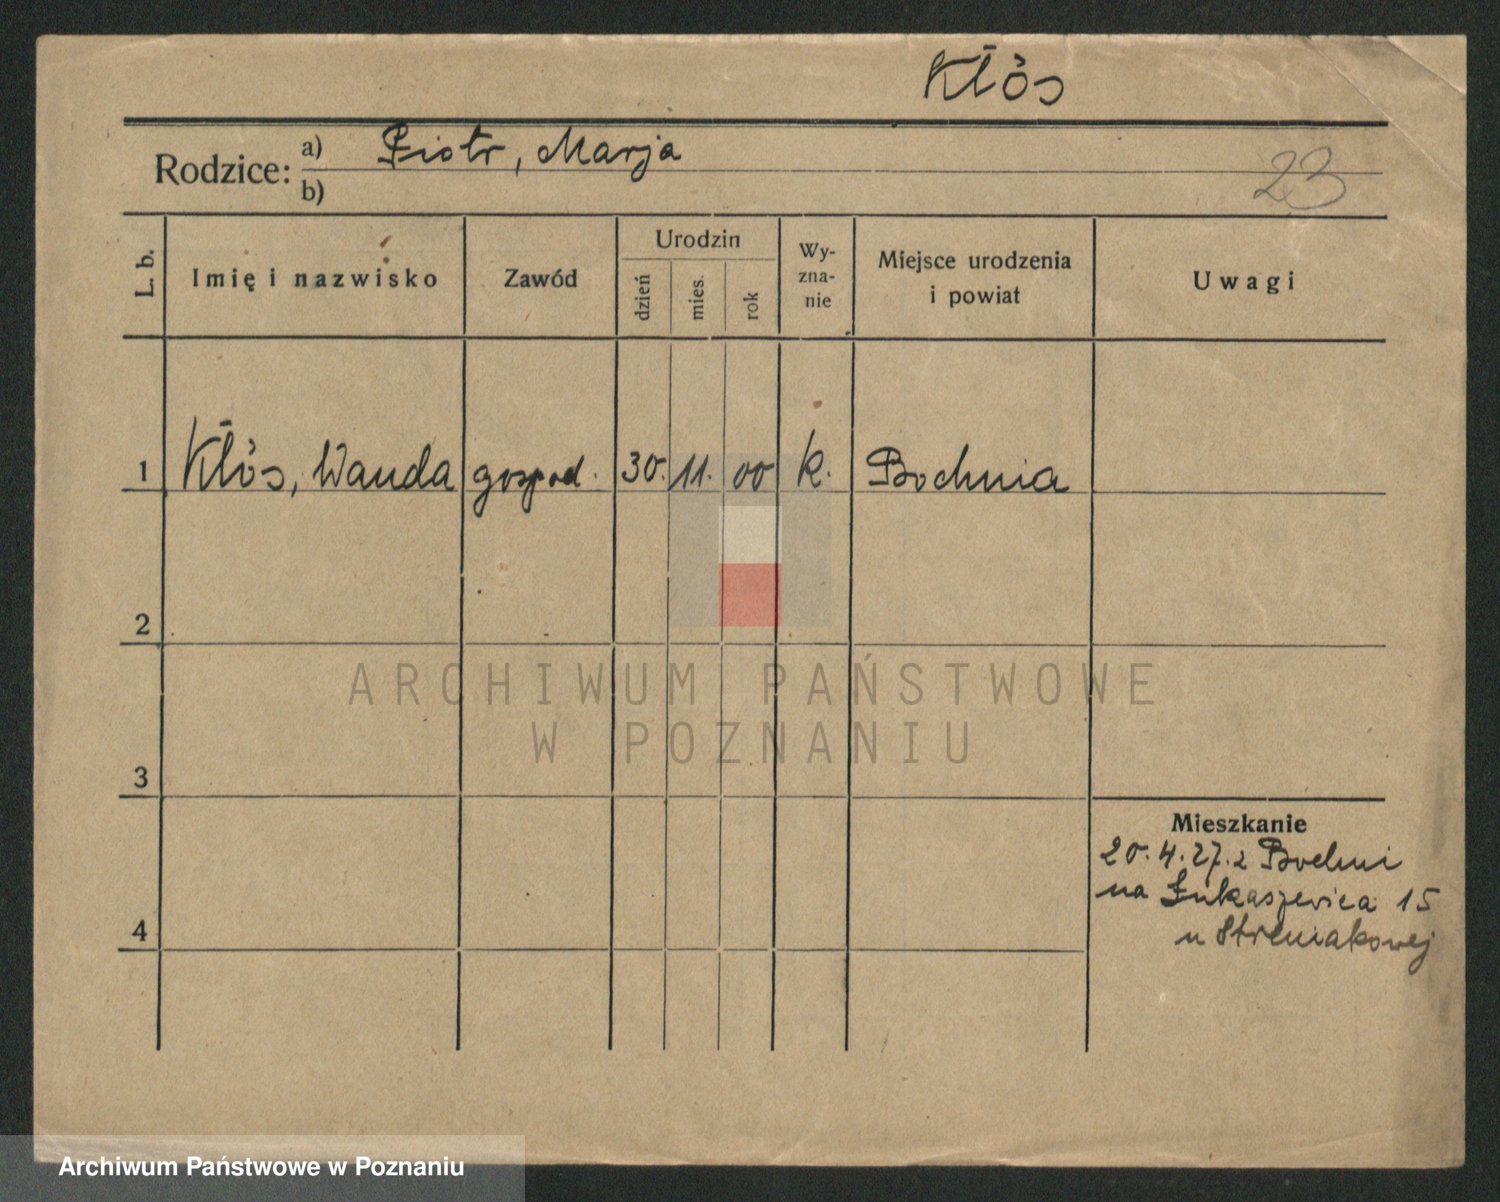 Kłós
Rodzice: a) Piotr, Marja
b)
23
L. b.
Imię i nazwisko
Zawód
Urodzin
dzień
mies.
rok
Wy-
zna-
nie
Miejsce urodzenia
i powiat
Uwagi
1 Kłós, Wanda gospod. 30. 11. 00 k. Bochnia
2
ARCHIWUM PAŃSTWOWE
W POZNANIU
3
Mieszkanie
20.4.27. z Bochni
na Łukaszewicza 15
4
u
Archiwum Państwowe w Poznaniu